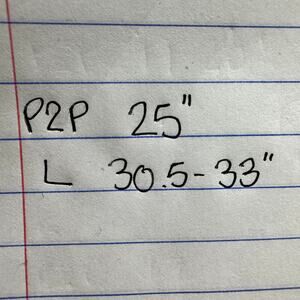 P2P 25"
L 30.5-33"